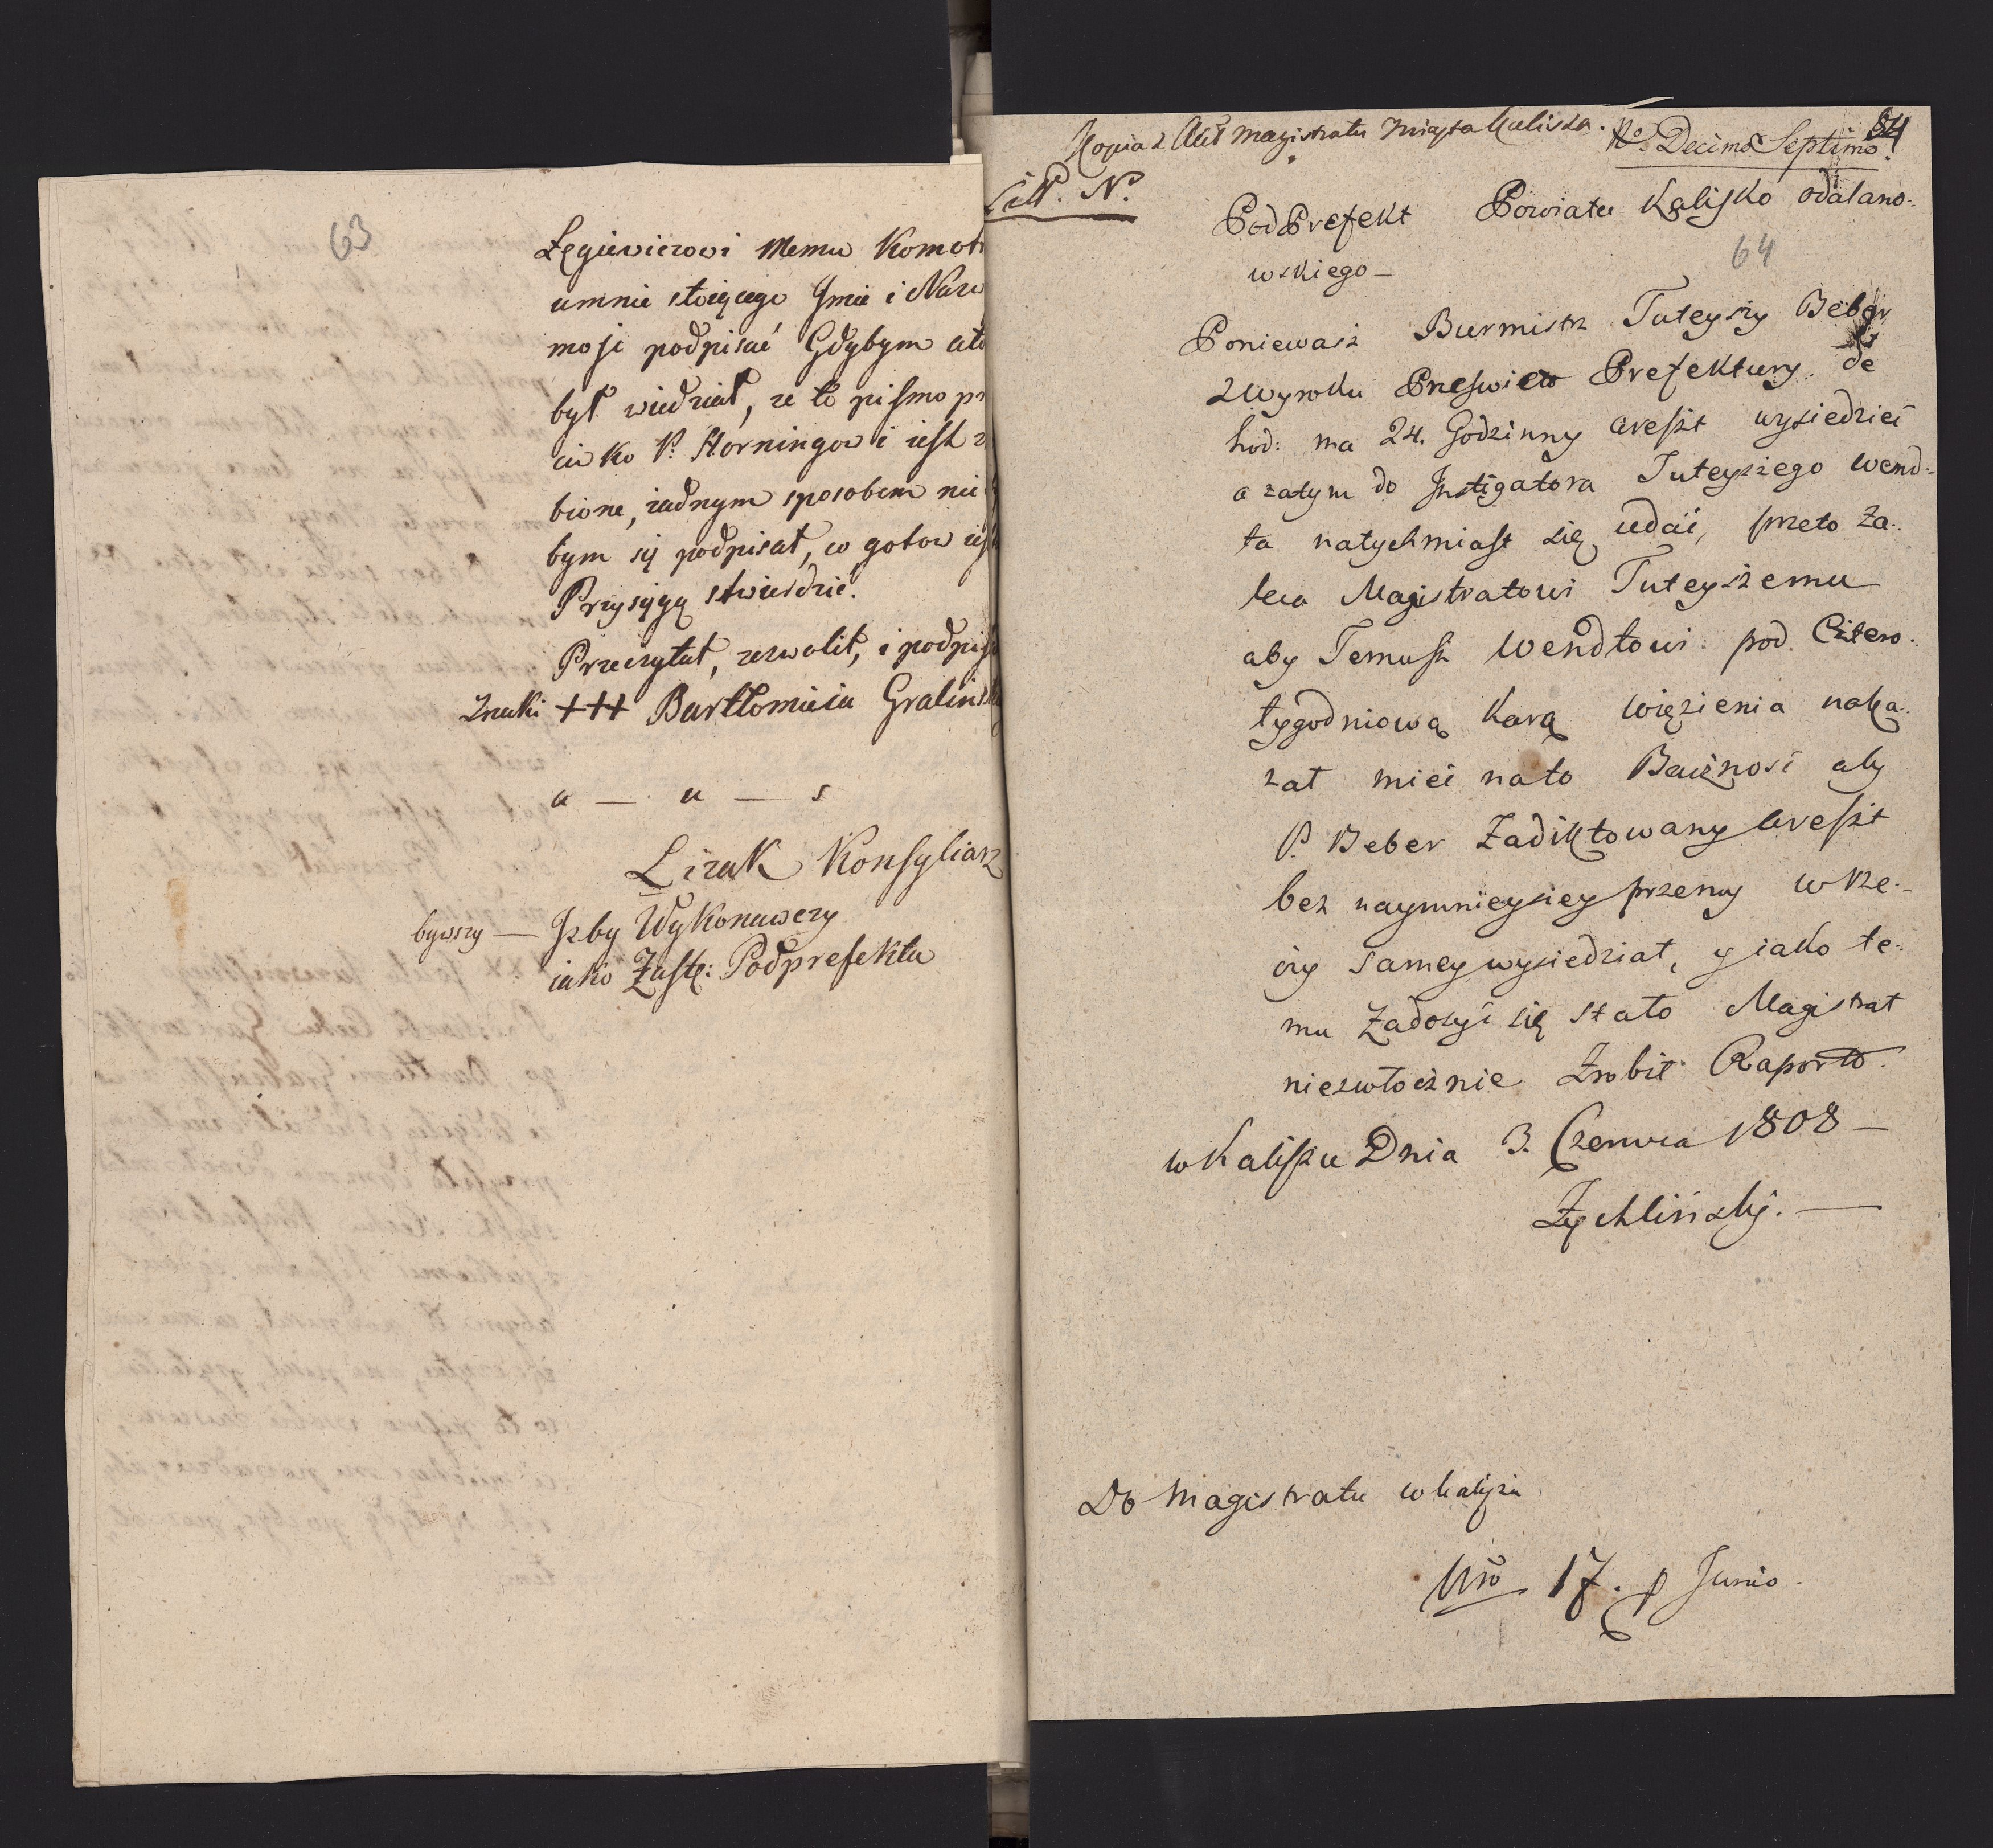 63
Łęgiewiczowi Memu Komotr
umnie stoiącego Jmie i Nazw
moje podpisać Gdybym ato
był wiedział, ze to pismo pr
ciwko P. Horningowi iest z
bione, żadnym sposobem nie
bym się podpisał, co gotow iest
Przysięgą stwierdzić.
Przeczytał, zezwolił, i podpis
Znaki +++ Bartłomieia Gralinsk
a — u — s
Lizak Konsyliarz
bywszy — Jzby Wykonawczy
iako Zastę: Podprefekta
Kopia z Akt Magistratu Miasta Kalisza. No Decimo Septimo.
64
Litt. N.
PodPrefekt Powiatu Kalisko odalano-
wskiego —
64
Poniewasz Burmistz Tuteyszy Beber
z wyroku Prefektury de
hod: ma 24. Godzinny areszt wysiedzieć
a zatym do Instigatora Tuteyszego Wend-
ta natychmiast się udać, przeto za-
leca Magistratowi Tuteyszemu
aby Temusz Wendtowi pod Cztero-
tygodniową karą więzienia naka-
zał mieć na to Baczność aby
P. Beber Zadiktowany areszt
bez naymnieyszey przerwy w rze-
czy samey wysiedział, y iako te-
mu Zadosyć się stało Magistrat
niezwłocznie Zrobił Raport.
w Kaliszu Dnia 3. Czerwca 1808 —
Zychliński. —
Do Magistratu w Kaliszu
Nro 17. p Junio.